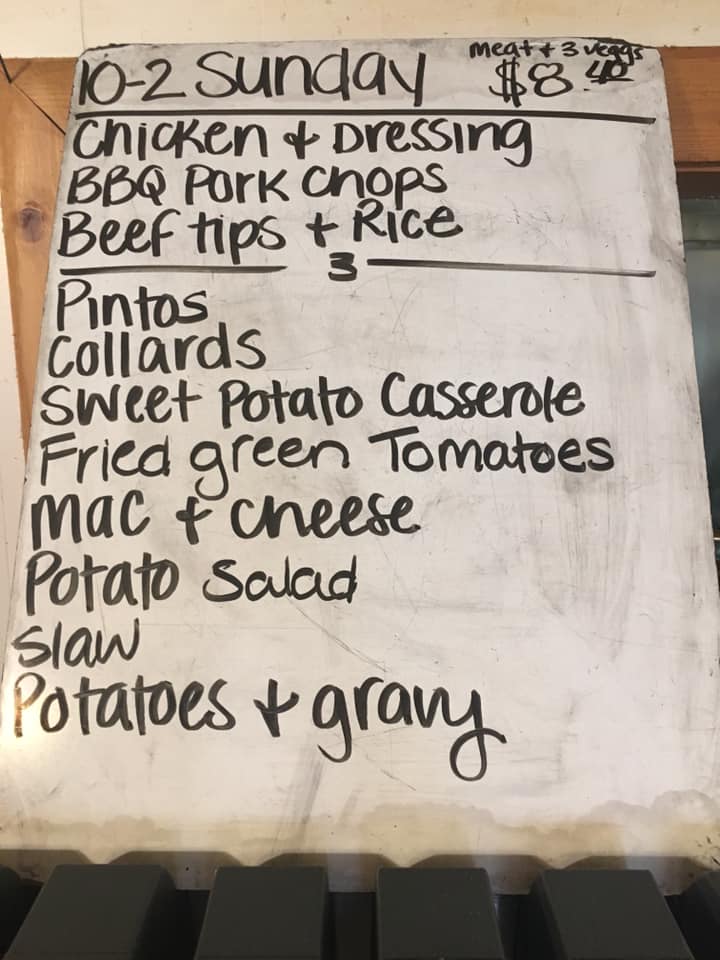 10-2 Sunday
meat + 3 veggs
$8.40
Chicken + Dressing
BBQ Pork Chops
Beef tips + Rice
3
Pintos
Collards
Sweet Potato Casserole
Fried green Tomatoes
Mac + cheese
Potato Salad
Slaw
Potatoes + gravy